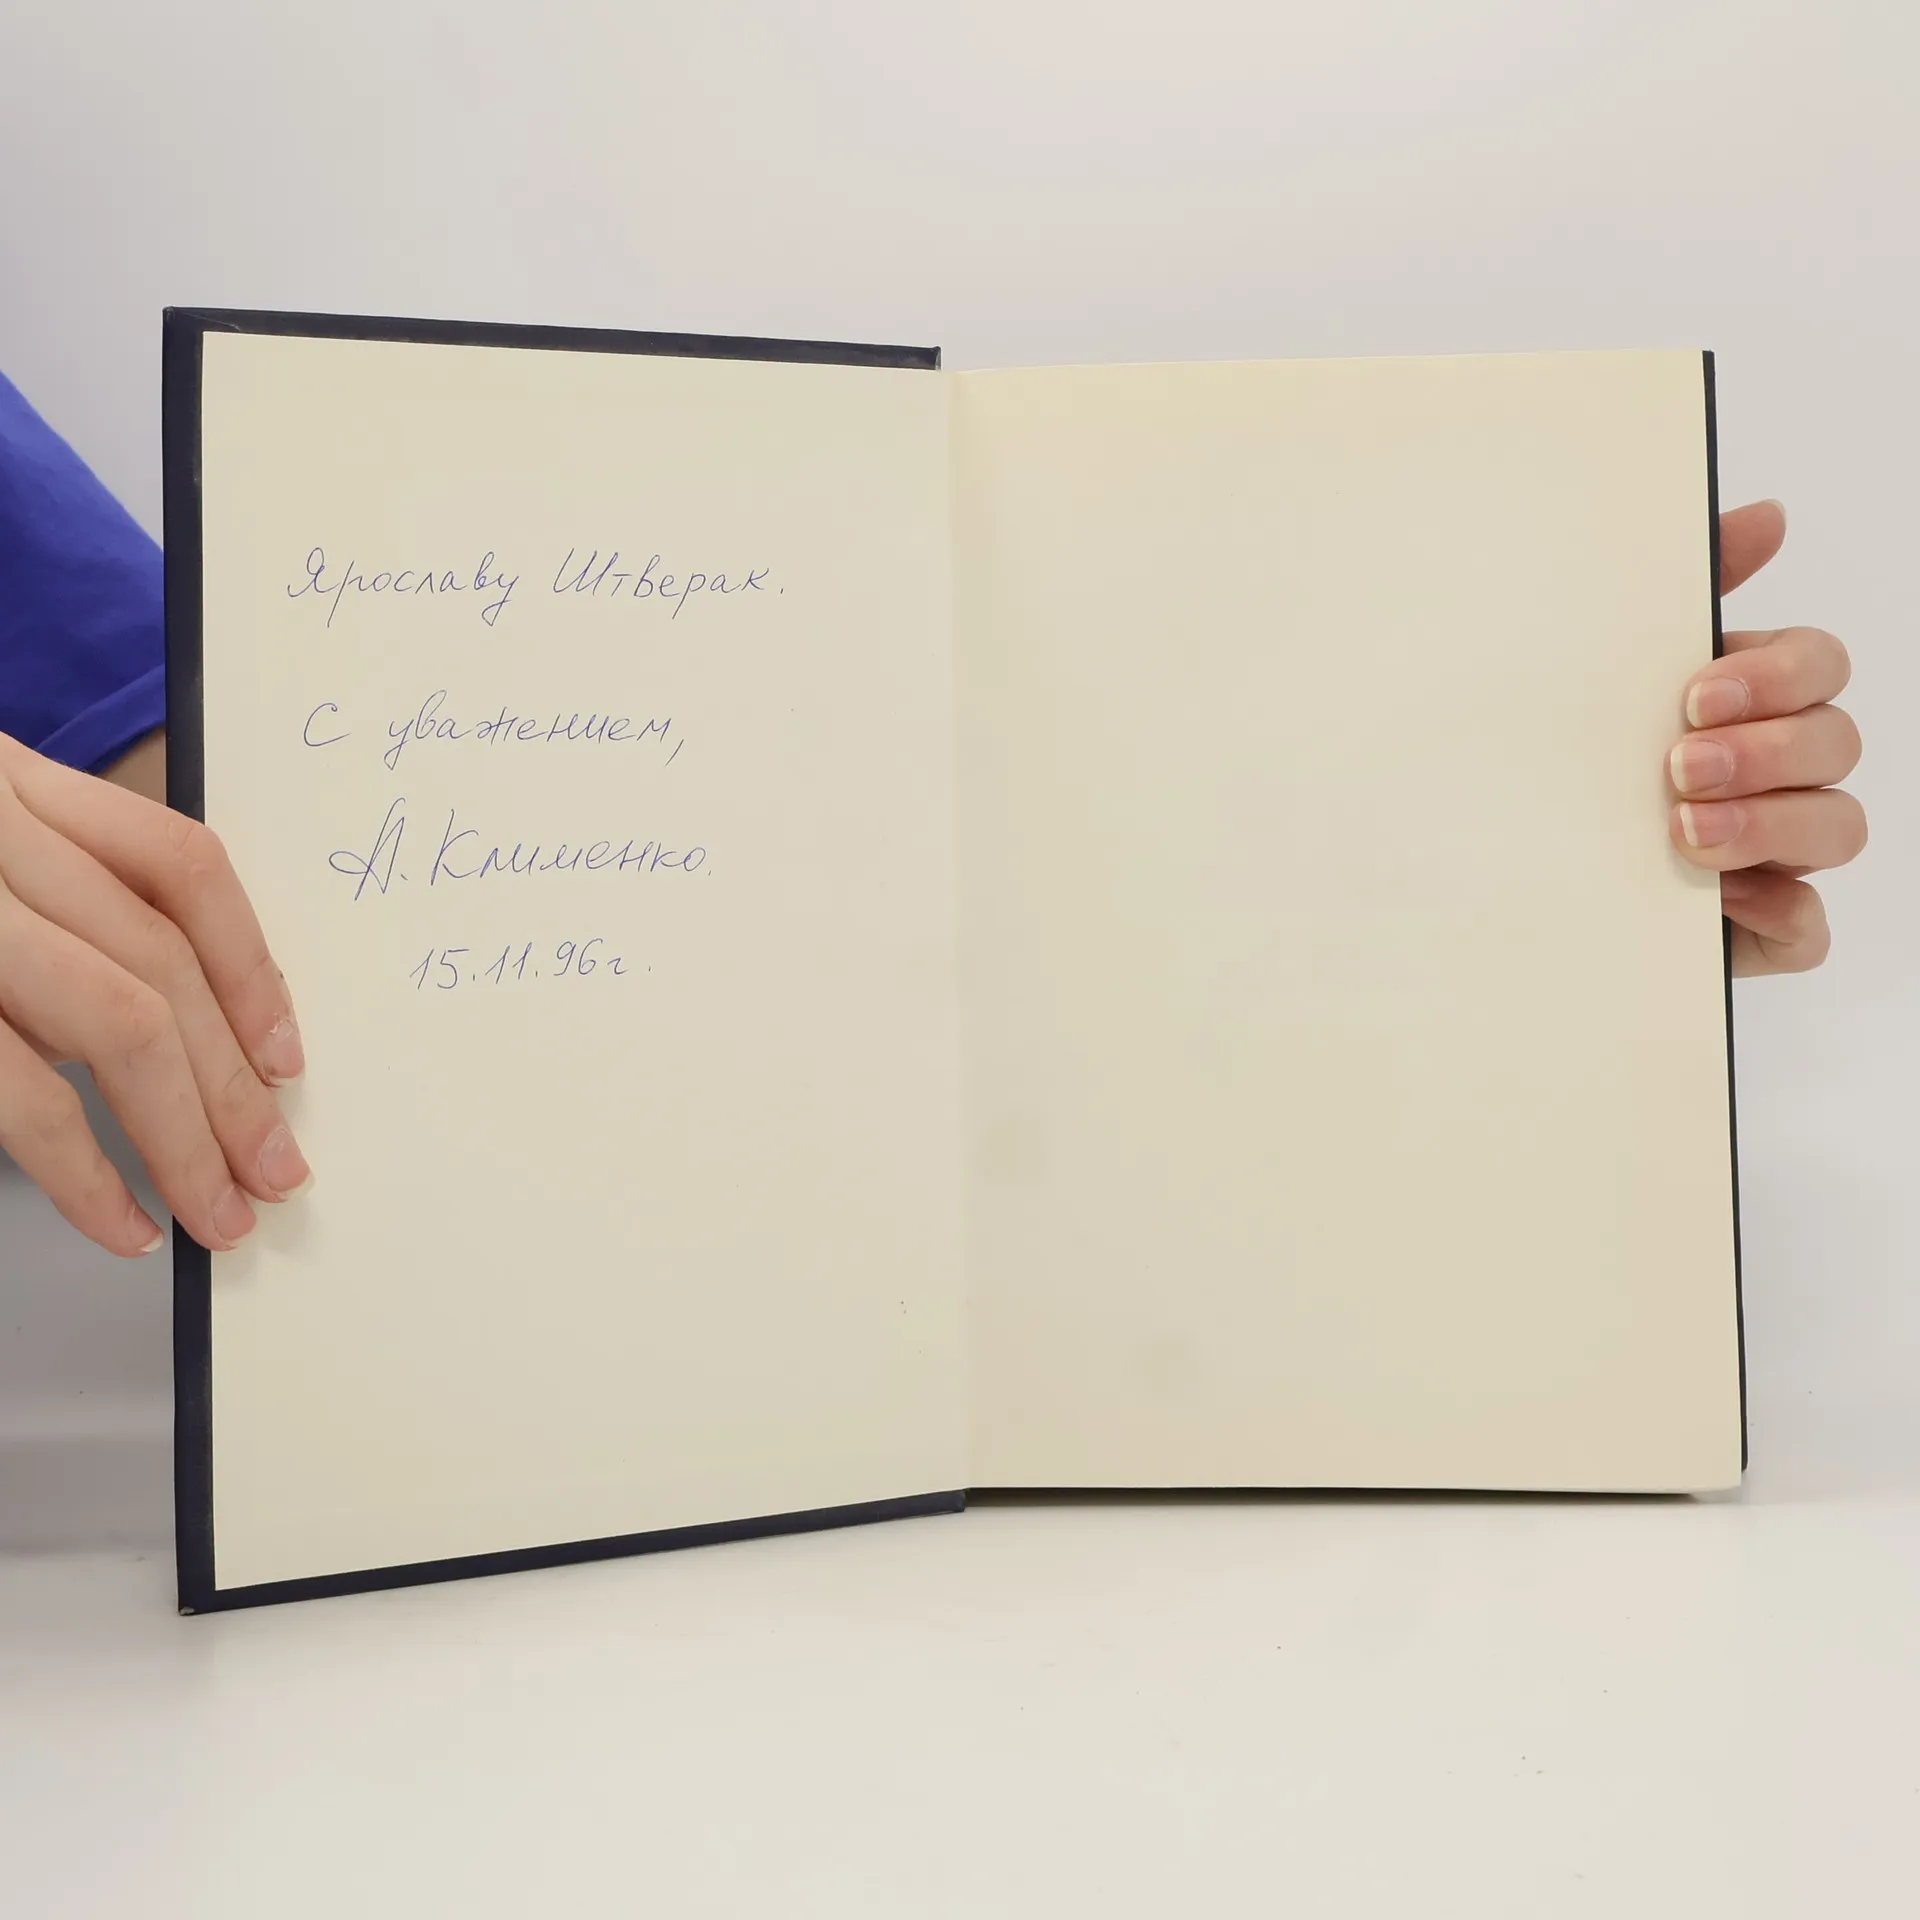 Ярославу Штверак.
С уважением,
А. Клименко.
15.11.96г.